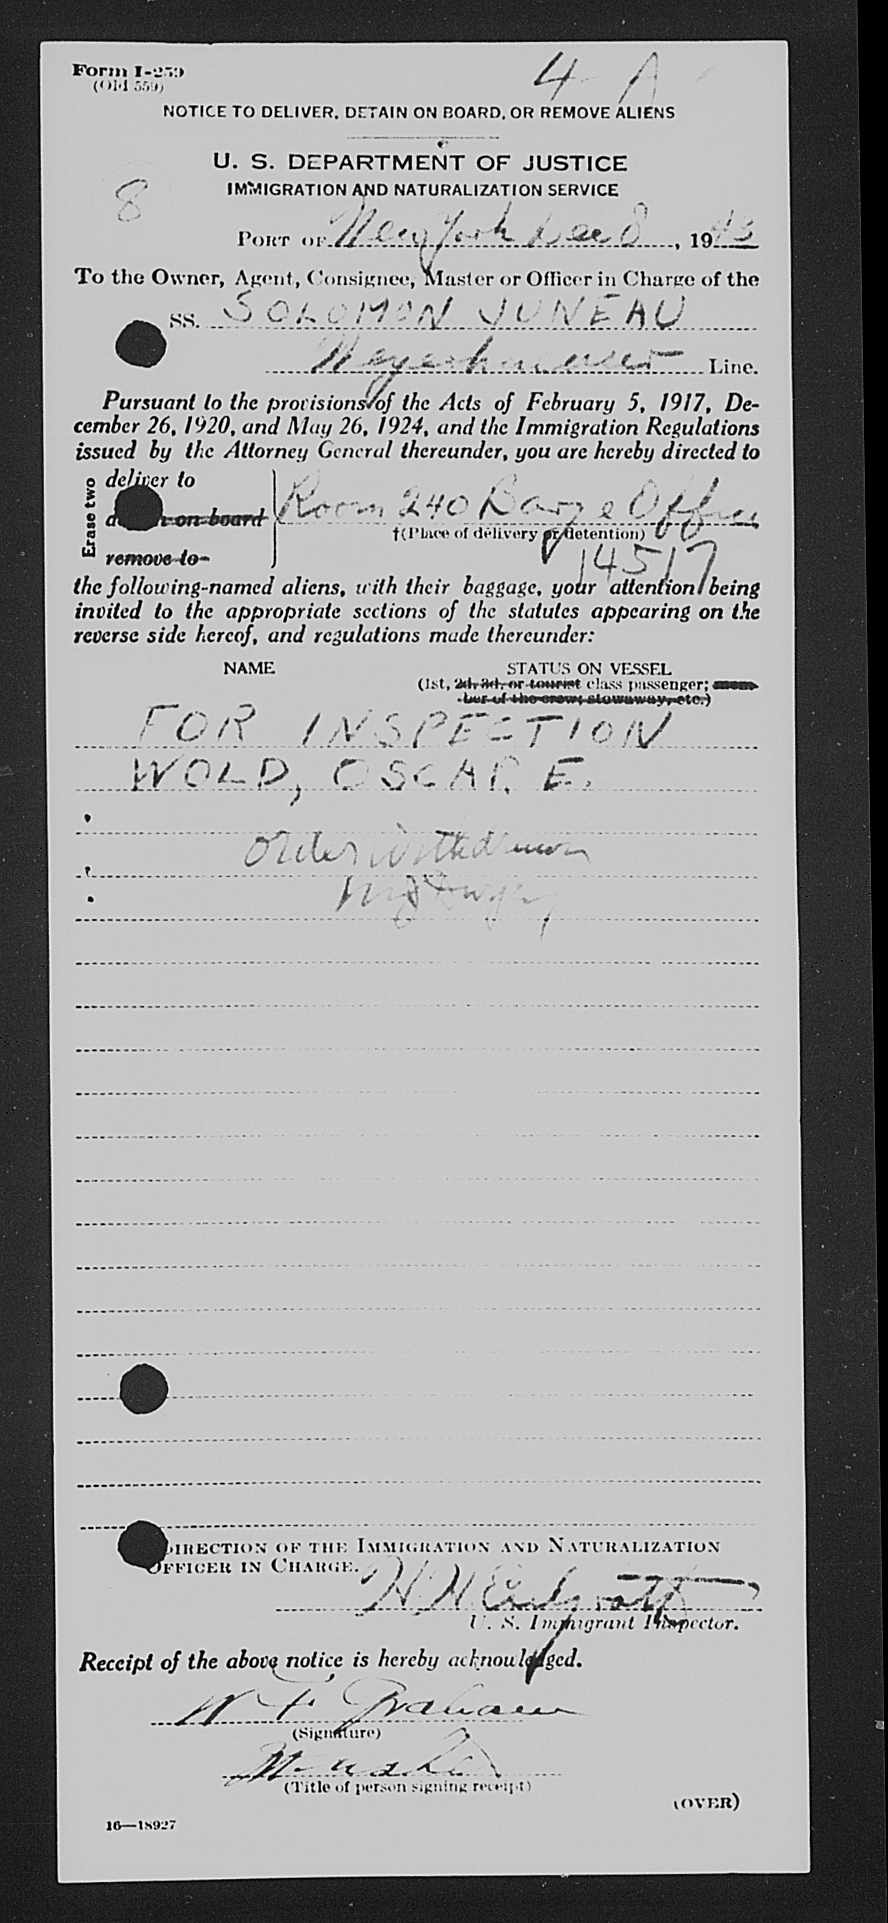 Form I-259
(Old 559)
4 A
NOTICE TO DELIVER, DETAIN ON BOARD, OR REMOVE ALIENS
U. S. DEPARTMENT OF JUSTICE
IMMIGRATION AND NATURALIZATION SERVICE
8
PORT OF New York Dec 8, 1943
To the Owner, Agent, Consignee, Master or Officer in Charge of the
SS. SOLOMON JUNEAU
Weyerhaeuser Line.
Pursuant to the provisions of the Acts of February 5, 1917, De-
cember 26, 1920, and May 26, 1924, and the Immigration Regulations
issued by the Attorney General thereunder, you are hereby directed to
Erase two
deliver to
on board
remove to
Room 240 Barge Office
†(Place of delivery or detention)
14517
the following-named aliens, with their baggage, your attention being
invited to the appropriate sections of the statutes appearing on the
reverse side hereof, and regulations made thereunder:
NAME STATUS ON VESSEL
(1st, 2d, 3d, or tourist class passenger; mem-
ber of the crew; stowaway, etc.)
FOR INSPECTION
WOLD, OSCAR E.
Order Withdrawn
DIRECTION OF THE IMMIGRATION AND NATURALIZATION
OFFICER IN CHARGE.
H H
U. S. Immigrant Inspector.
Receipt of the above notice is hereby acknowledged.
W F Graham
(Signature)
Master
(Title of person signing receipt)
(OVER)
16—18927